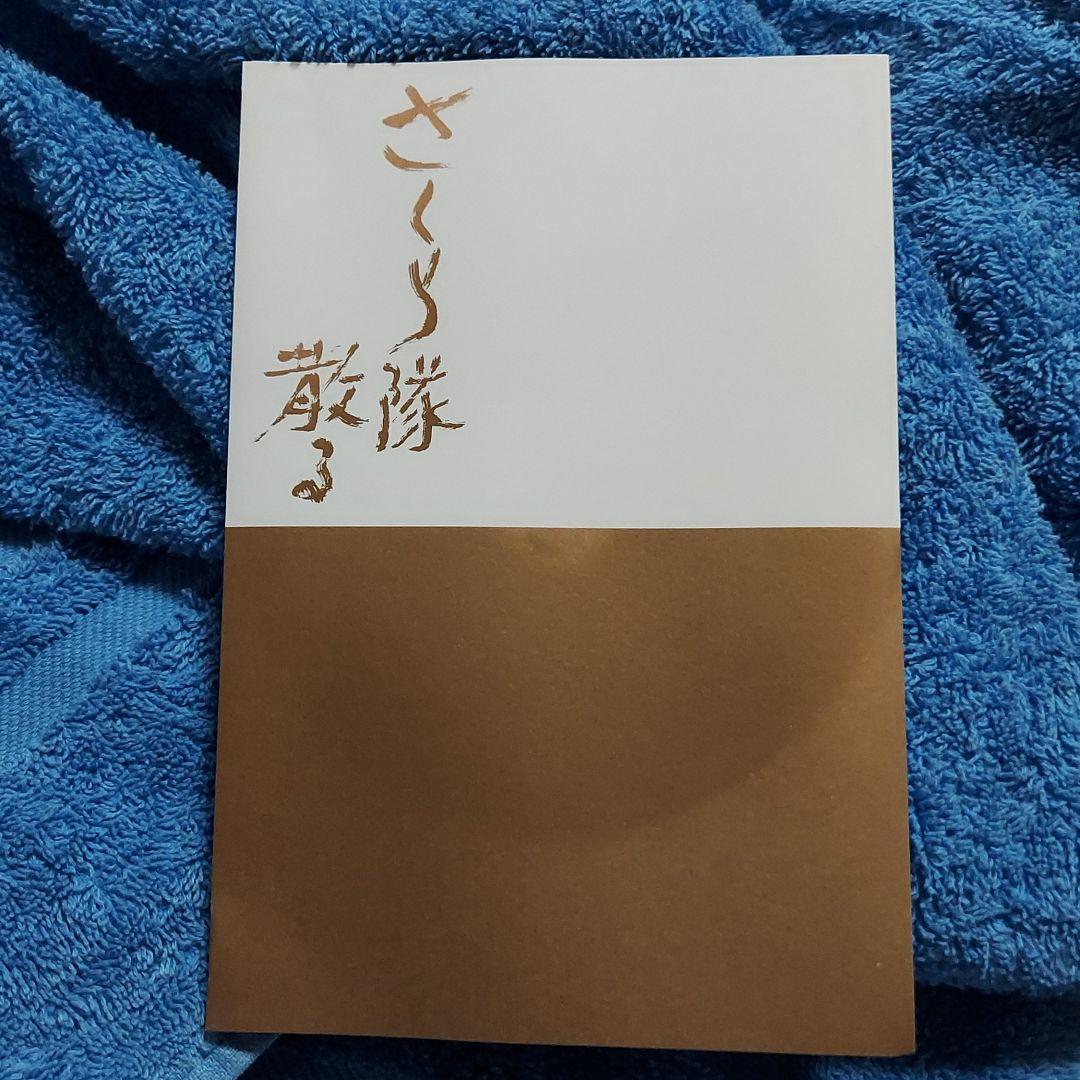 さくら隊
散る